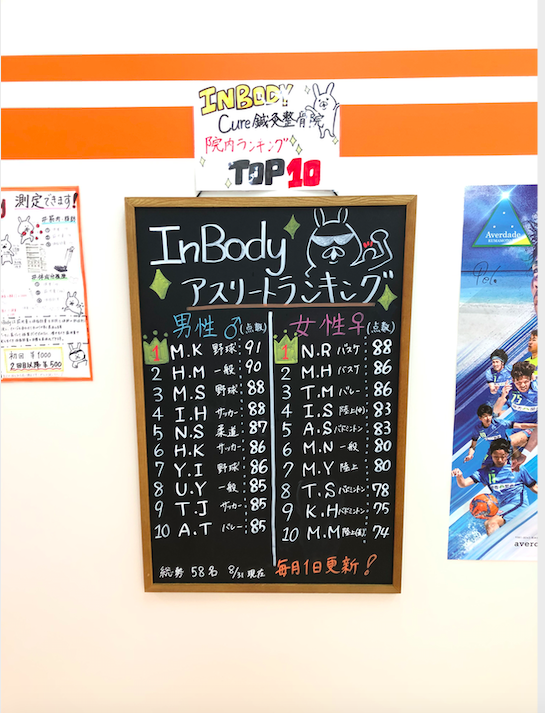 INBODY
Cure鍼灸整骨院
院内ランキング
TOP10
測定できます!
初回 ¥1000
2回目以降 ¥500
InBody
アスリートランキング
男性♂(点数)
1 M.K 野球:91
2 H.M 一般:90
3 M.S 野球:88
4 I.H サッカー:88
5 N.S 柔道:87
6 H.K サッカー:86
7 Y.I 野球:86
8 U.Y 一般:85
9 T.J サッカー:85
10 A.T バレー:85
女性♀(点数)
1 N.R バスケ:88
2 M.H バスケ:86
3 T.M バレー:86
4 I.S 陸上:83
5 A.S バドミントン:83
6 M.N 一般:80
7 M.Y 陸上:80
8 T.S バドミントン:78
9 K.H バドミントン:75
10 M.M 陸上:74
総勢 58名 8/31現在
毎月1日更新!
Averdade